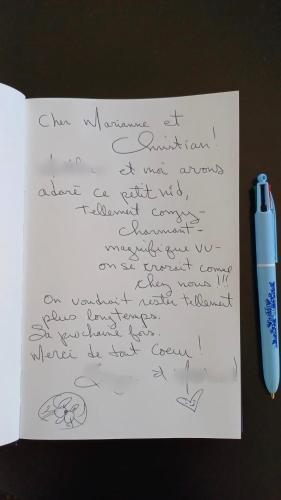 Cher Marianne et
Christian!
et moi avons
adoré ce petit nid,
Tellement comfy-
charmant-
magnifique vu-
on se croirait come
chez nous!!!
On voudrait rester tellement
plus longtemps.
La prochaine fois.
Merci de tout Coeur!
et